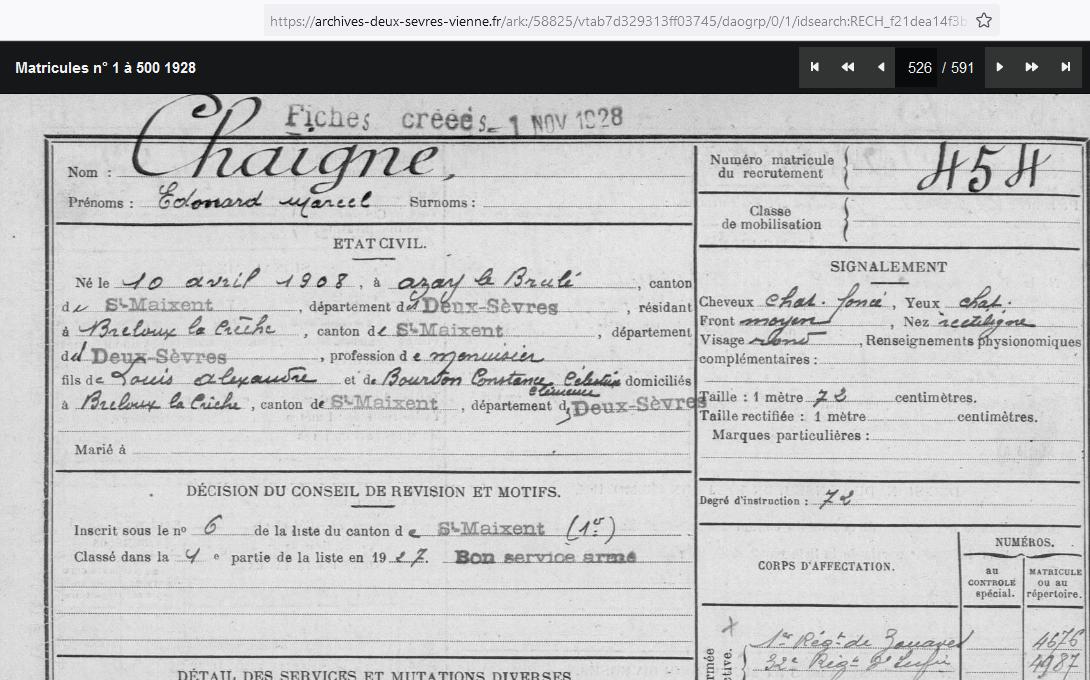 https://archives-deux-sevres-vienne.fr/ark:/58825/vtab7d329313ff03745/daogrp/0/1/idsearch:RECH_f21dea14f3b
Matricules n° 1 à 500 1928
526 / 591
Fiches créées 1 NOV 1928
Nom : Chaigne,
Prénoms : Edouard Marcel Surnoms :
ETAT CIVIL.
Né le 10 avril 1908, à azay le Brulé, canton
de St-Maixent, département des Deux-Sèvres, résidant
à Breloux la Crèche, canton de St-Maixent, département
des Deux-Sèvres, profession de menuisier
fils de Louis alexandre et de Bourdon Constance Célestine domiciliés
Clémence
à Breloux la Crèche, canton de St-Maixent, département des Deux-Sèvres
Marié à
DÉCISION DU CONSEIL DE REVISION ET MOTIFS.
Inscrit sous le n° 6 de la liste du canton de St-Maixent (1er)
Classé dans la 1e partie de la liste en 1927. Bon service armé
DÉTAIL DES SERVICES ET MUTATIONS DIVERSES
Numéro matricule du recrutement 454
Classe de mobilisation
SIGNALEMENT
Cheveux chat. foncé, Yeux chat.
Front moyen, Nez rectiligne
Visage rond, Renseignements physionomiques
complémentaires :
Taille : 1 mètre 72 centimètres.
Taille rectifiée : 1 mètre centimètres.
Marques particulières :
Degré d'instruction : 72
CORPS D'AFFECTATION.
NUMÉROS.
au CONTROLE spécial.
MATRICULE ou au répertoire.
1er Régt de Zouaves 4676
32e Régt d'Infie 4987